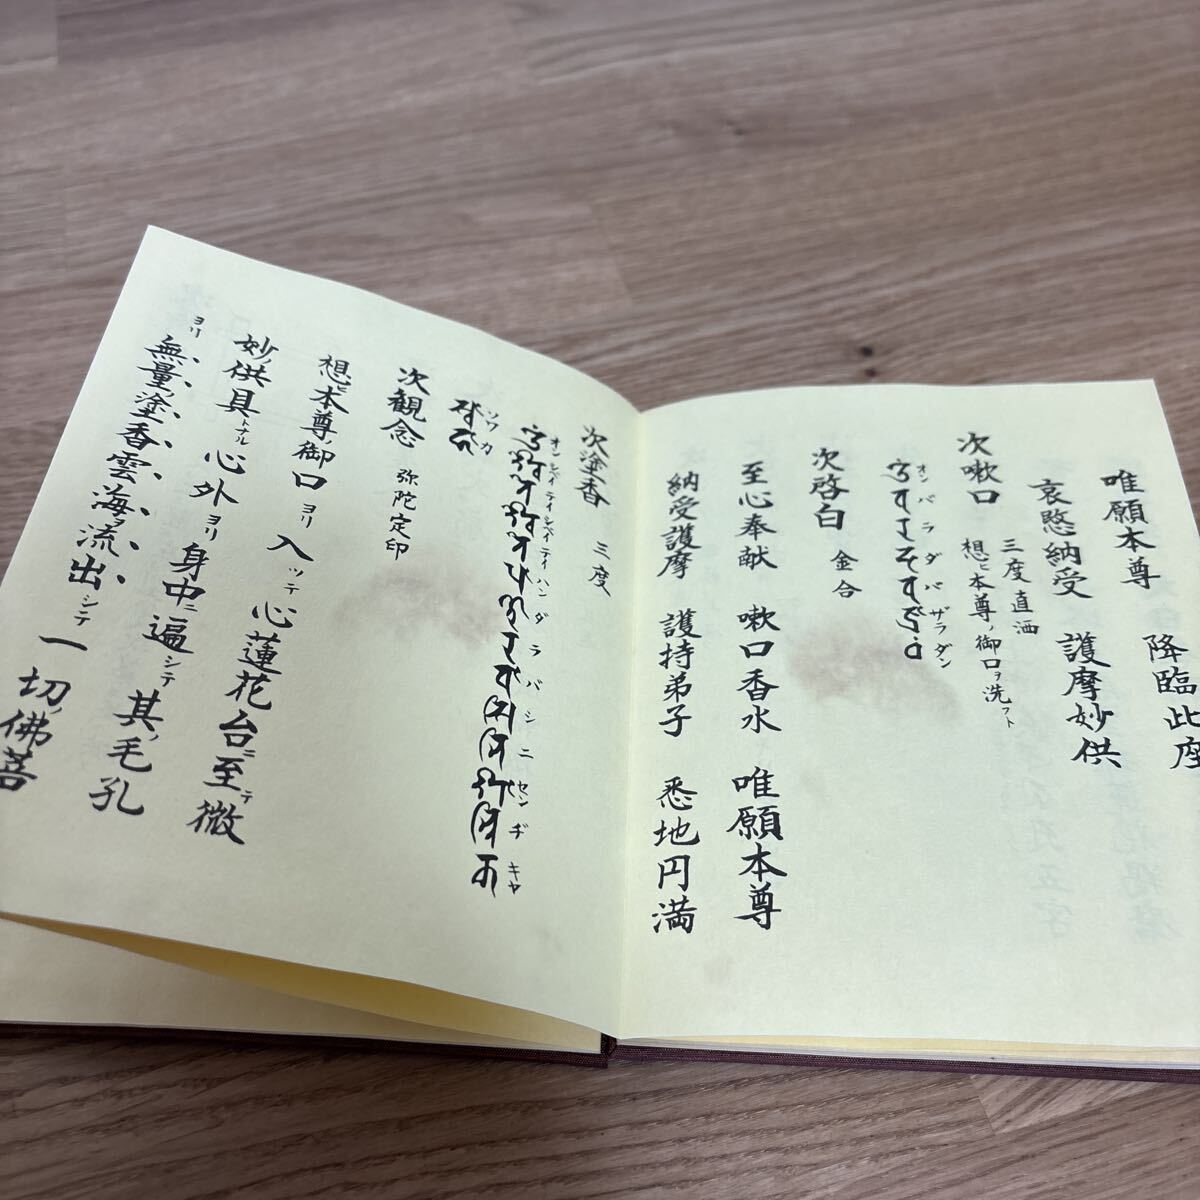 唯願本尊 降臨此座
哀愍納受 護摩妙供
次嗽口 三度直洒 想ヒ本尊ノ御口ヲ洗フト
オンバラダバザラダン
次啓白 金合
至心奉献 嗽口香水 唯願本尊
納受護摩 護持弟子 悉地円満
次塗香 三度
オンシベイテイシベイテイハンダラバシニセンヂキャ
ソワカ
次観念 弥陀定印
想ヒ本尊ノ御口ヨリ入ッテ心蓮花台ニ至テ微
妙ノ供具トナル心外ヨリ身中ニ遍シテ其ノ毛孔
ヨリ無量ノ塗香雲海ヲ流出シテ一切ノ佛菩